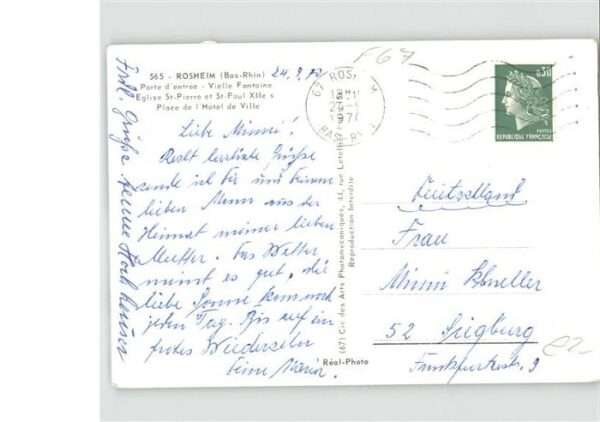 565 - ROSHEIM (Bas-Rhin)
Porte d'entrée - Vielle Fontaine
Eglise St-Pierre et St-Paul XIIe s
Place de l'Hôtel de Ville
24.9.
Liebe Minni!
Recht herzliche Grüße
sende ich Dir und Deinem
lieben Mann aus der
Heimat meiner lieben
Mutter. Das Wetter
meint es gut, die
liebe Sonne kommt
jeden Tag. Bis auf ein
frohes Wiedersehn
Deine Maria.
Frdl. Grüße
F67
67 ROS
BAS RHIN
0,30
POSTES
REPUBLIQUE FRANÇAISE
(67) Cie des Arts Photomécaniques, 44, rue Letellier
Reproduction Interdite
Réal-Photo
Deutschland
Frau
Minni
52 Siegburg
Frankfurterstr. 9
e2-